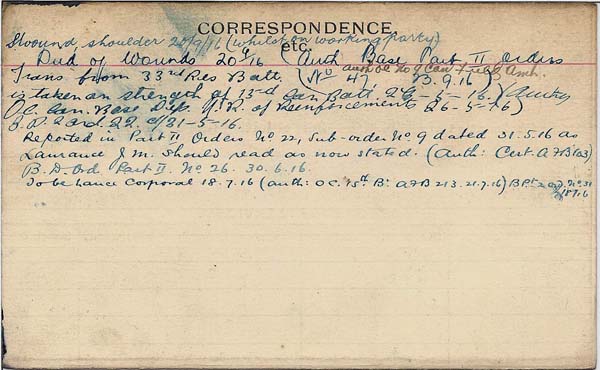 CORRESPONDENCE
etc.
S wound shoulder 20/9/16 (whilst on working party)
Died of Wounds 20 9/16 (Auth Base Part II Orders
No 47 23.9.16)
auth oc no 9 Can Field Amb.
Trans from 33rd Res Batt.
is taken on strength of 13th Can Batt 26-5-16. (Authy
O.C. Can. Base Dep. of Reinforcements 26-5-16)
B.P. 2 ord. 22. d/31-5-16.
Reported in Part II Orders No 22, Sub-order No 9 dated 31.5.16 as
Laurance J.M. Should read as now stated. (Auth: Cert. A7B 103)
B.D. Ord Part II. No 26. 30.6.16.
To be Lance Corporal 18.7.16 (auth: OC. 15th Bn A7B 213. 21.7.16) BPt 2 ord. No. 31